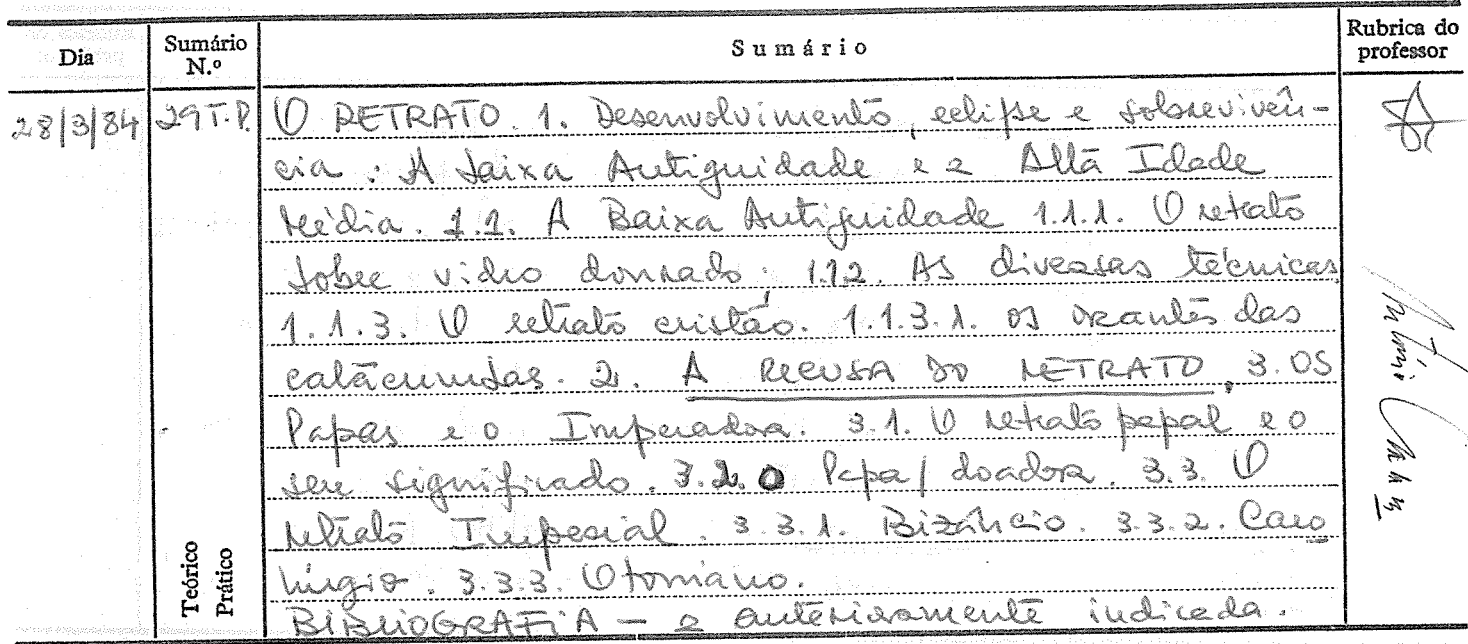 Dia Sumário N.º Sumário Rubrica do professor
28/3/84 29 T.P. O RETRATO. 1. Desenvolvimento, eclipse e sobrevivên-
cia: A Baixa Antiguidade e a Alta Idade
Média. 1.1. A Baixa Antiguidade 1.1.1. O retrato
sobre vidro dourado; 1.1.2. As diversas técnicas
1.1.3. O retrato cristão. 1.1.3.1. os orantes das
catacumbas. 2. A RECUSA DO RETRATO, 3. OS
Papas e o Imperador. 3.1. O retrato papal e o
seu significado. 3.2. O Papa/doador. 3.3. O
retrato Imperial. 3.3.1. Bizâncio. 3.3.2. Caro
língio. 3.3.3. Otoniano.
BIBLIOGRAFIA - a anteriormente indicada.
Teórico
Prático